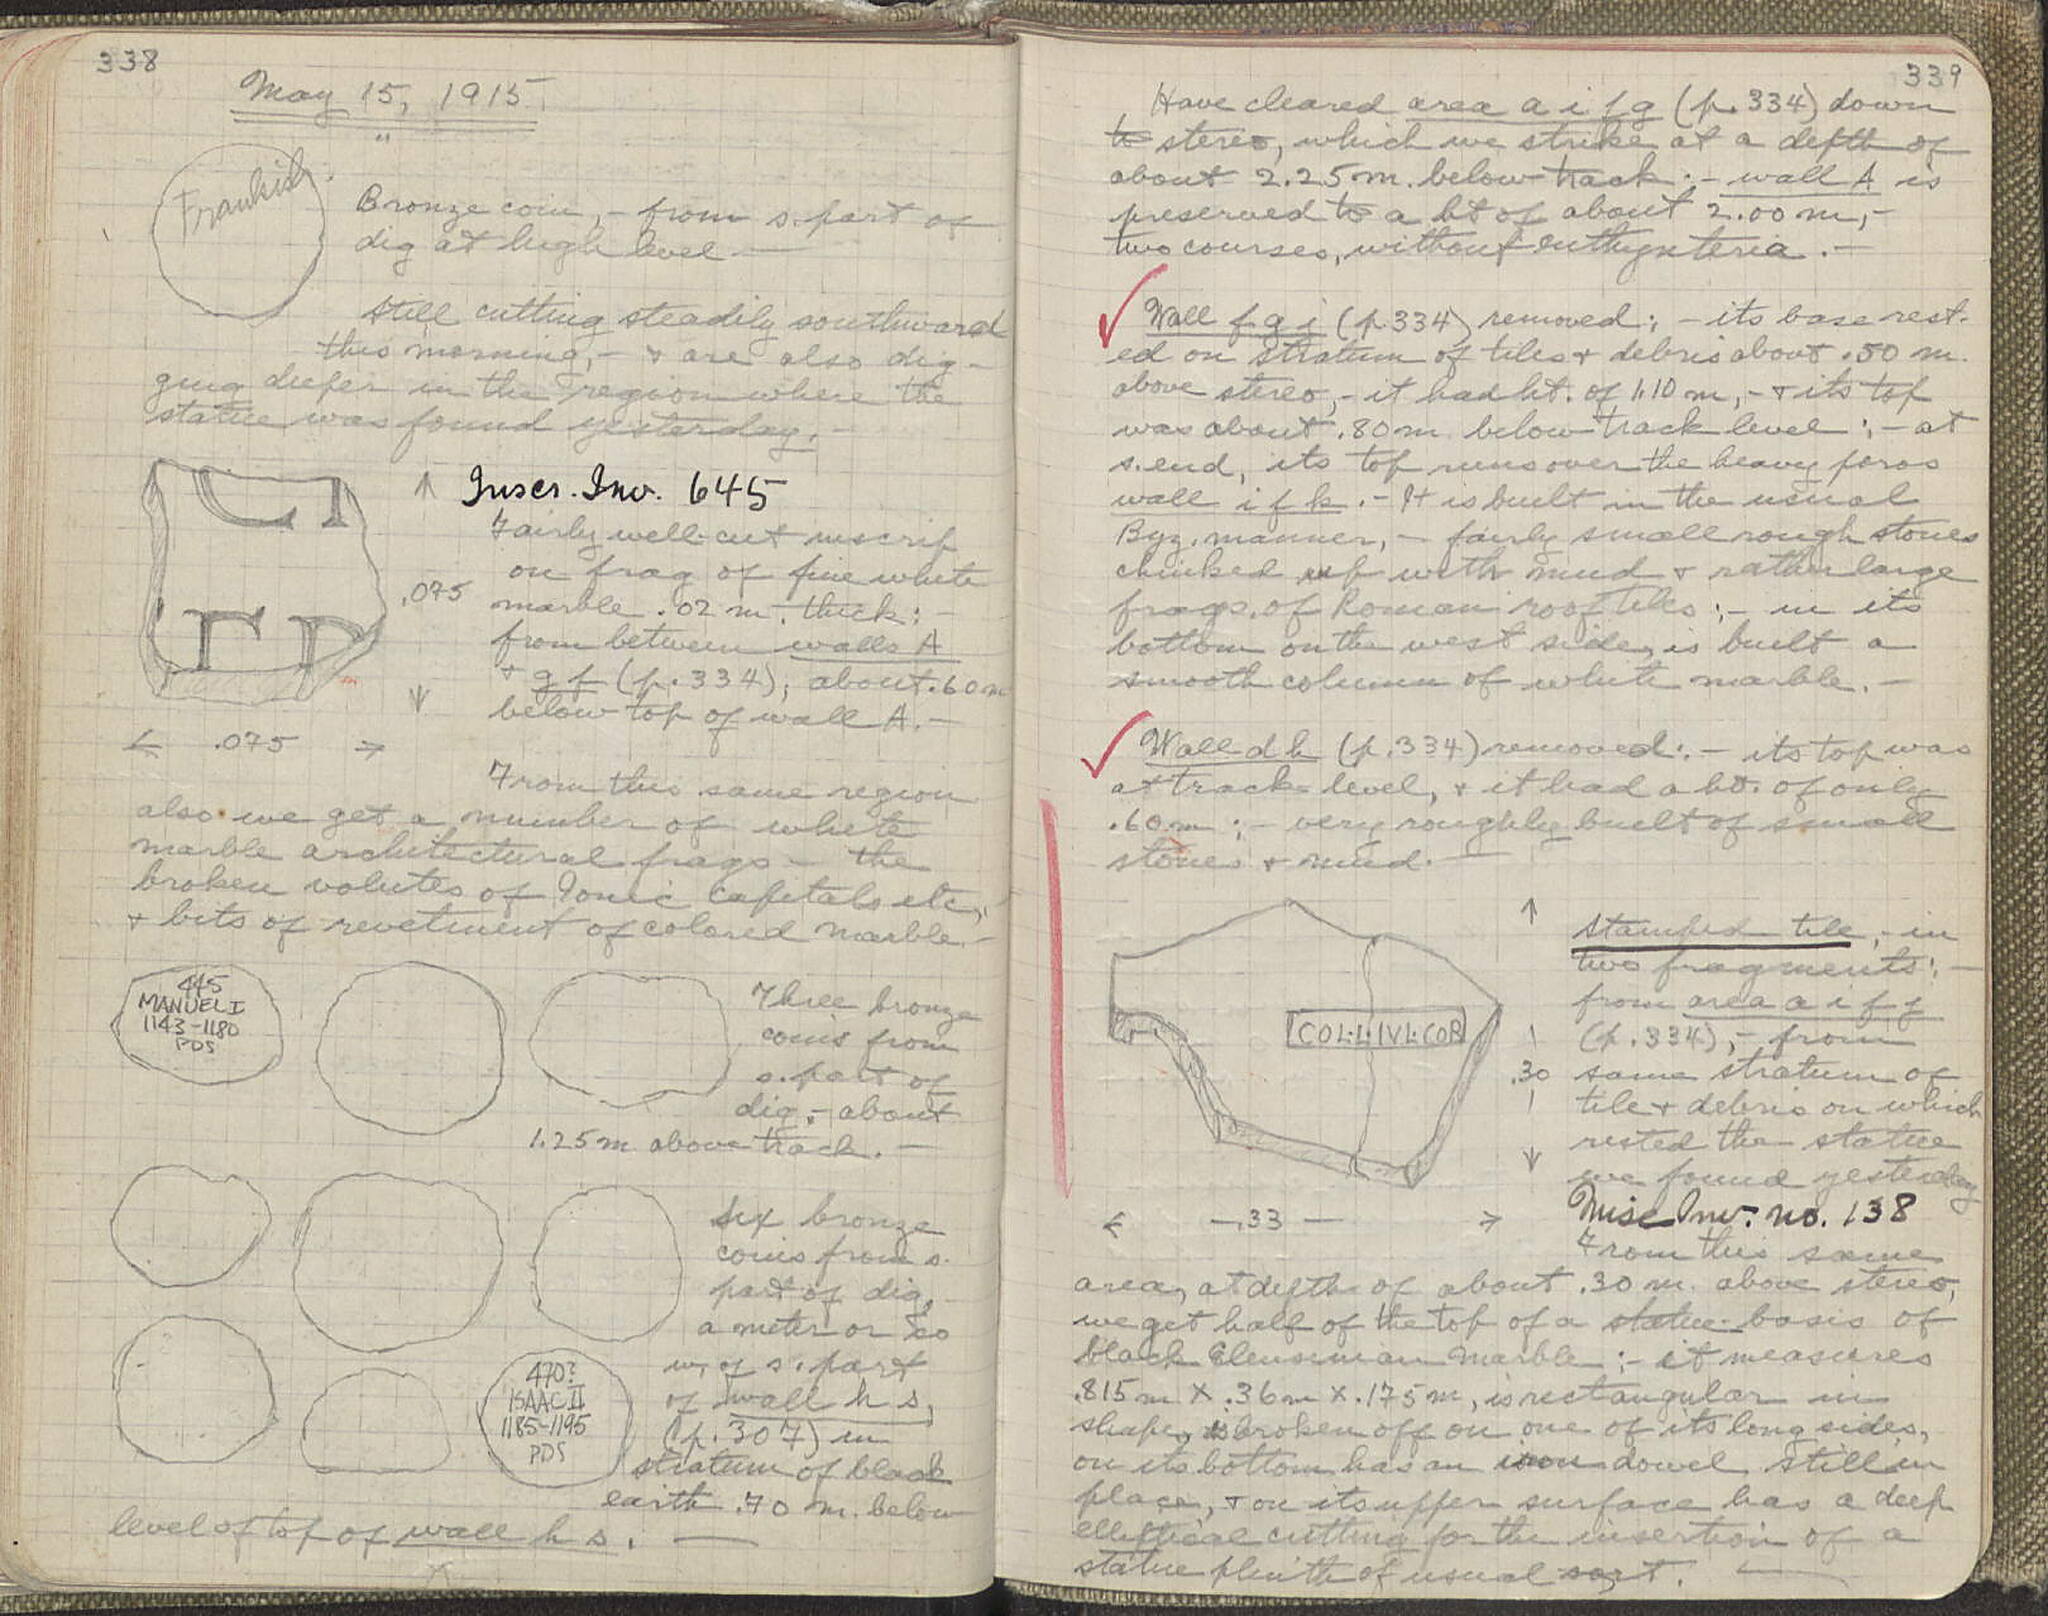 338
May 15, 1915
"
Frankish.
Bronze coin, - from s. part of
dig at high level —
Still cutting steadily southward
this morning, - & are also dig-
ging deeper in the region where the
statue was found yesterday. -
Inscr. Inv. 645
Fairly well-cut inscrip
on frag of fine white
.075
marble .02 m. thick: -
from between walls A
& g f (p. 334), about .60 m
below top of wall A. -
.075
From this same region
also we get a number of white
marble architectural frags - the
broken volutes of Ionic capitals etc,
& bits of revetment of colored marble. -
445
MANUEL I
1143-1180
PDS
Three bronze
coins from
s. part of
dig, - about
1.25 m above track. —
Six bronze
coins from s.
part of dig,
a meter or so
w. of s. part
of wall h s,
(p. 307) in
470?
ISAAC II
1185-1195
PDS
stratum of black
earth .70 m. below
level of top of wall h s. —
339
Have cleared area a i f g (p. 334) down
to stereo, which we strike at a depth of
about 2.25 m. below track: - wall A is
preserved to a ht of about 2.00 m, -
two courses, without euthynteria. -
Wall f g j (p. 334) removed; - its base rest-
ed on stratum of tiles & debris about .50 m.
above stereo, - it had ht. of 1.10 m, - & its top
was about .80 m below track level; - at
s. end, its top runs over the heavy poros
wall i f k. - It is built in the usual
Byz. manner, - fairly small rough stones
chinked up with mud & rather large
frags. of Roman roof tiles; - in its
bottom on the west side, is built a
smooth column of white marble. -
Wall d h (p. 334) removed: - its top was
at track-level, & it had a ht. of only
.60 m; - very roughly built of small
stones & mud. —
COL·L·IVL·COR
Stamped tile, - in
two fragments; -
from area a i f g
(p. 334), - from
.30
same stratum of
tile & debris on which
rested the statue
we found yesterday
.33
Misc Inv. no. 138
From this same
area, at depth of about .30 m. above stereo,
we get half of the top of a statue-basis of
black Eleusinian marble; - it measures
.815 m X .36 m X .175 m, is rectangular in
shape, is broken off on one of its long sides,
on its bottom has an iron dowel still in
place, & on its upper surface has a deep
elliptical cutting for the insertion of a
statue plinth of usual sort. —